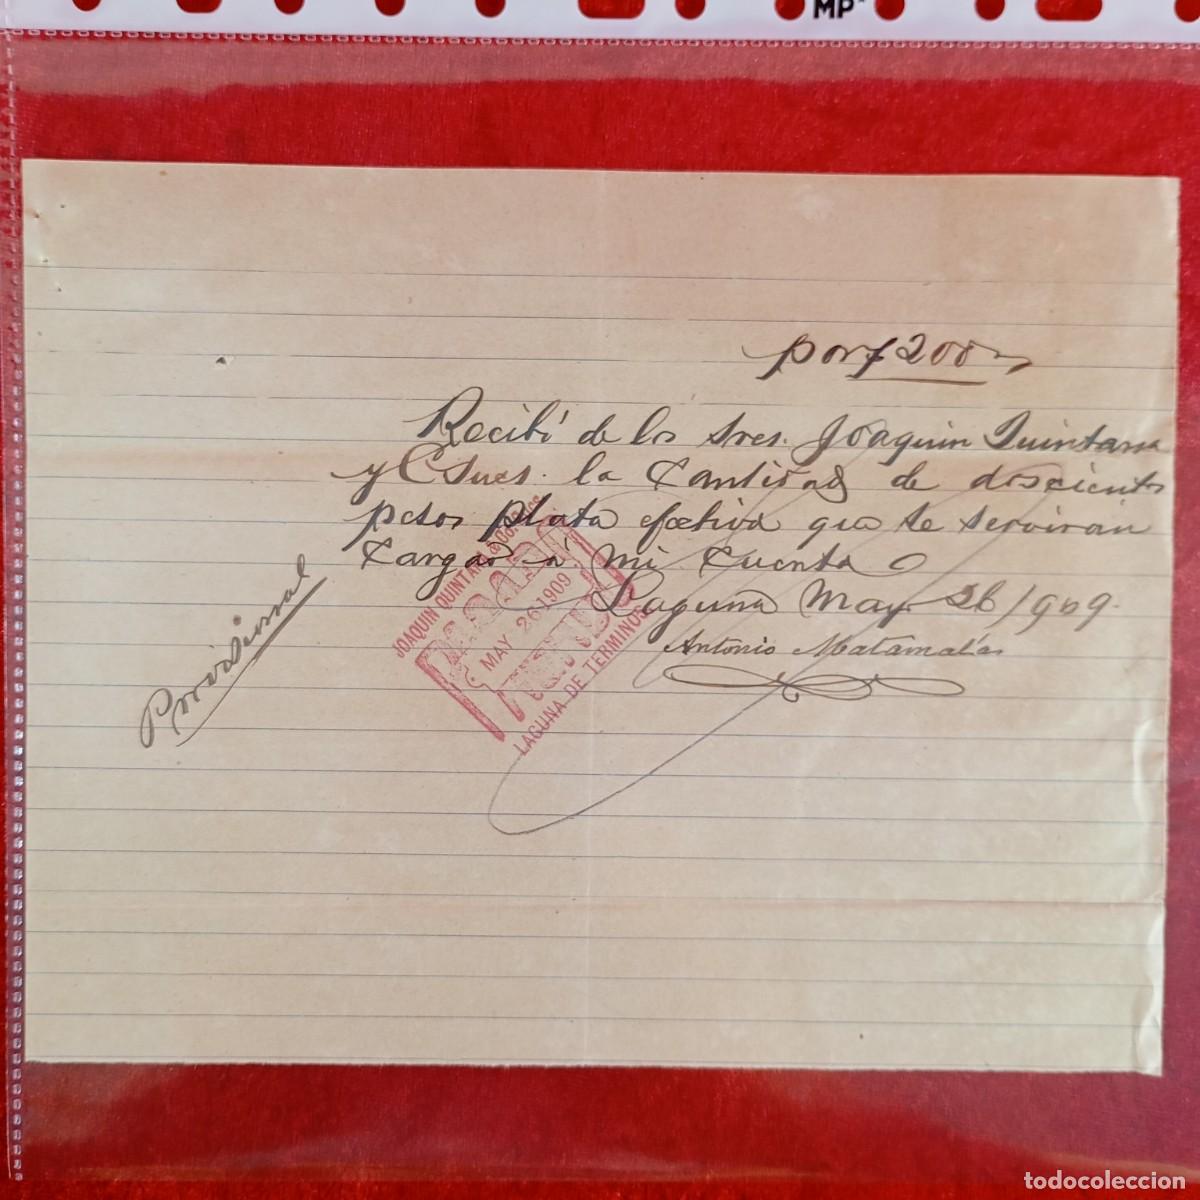 MP
por $200
Recibí de los Sres. Joaquin Quintana
y C Sucs. la Cantidad de doscientos
pesos plata efectiva que se serviran
Cargar á mi Cuenta
Laguna May 26/909.
Antonio Matamalas
Provisional
JOAQUIN QUINTANA
PAGADO
MAY 26 1909
LAGUNA DE TERMINOS
todocoleccion